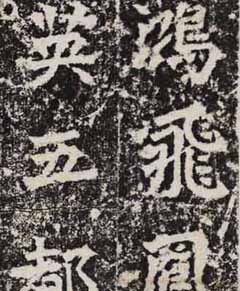 鴻飛鳳
英五都